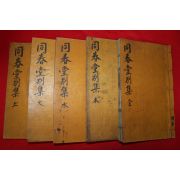 同春堂別集 金
同春堂別集 木
同春堂別集 水
同春堂別集 火
同春堂別集 土